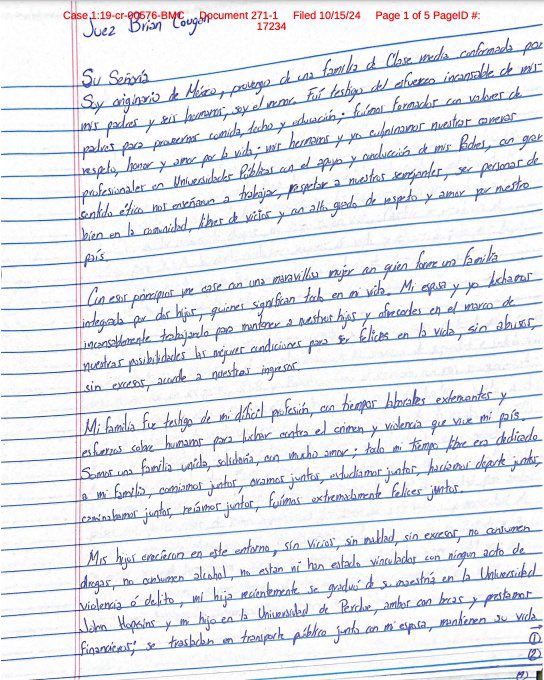 Case 1:19-cr-00576-BMC Document 271-1 Filed 10/15/24 Page 1 of 5 PageID #:
17234
Juez Brian Cougan
Su Señoría
Soy originario de México, provengo de una familia de Clase media conformada por
mis padres y seis hermanos, soy el menor. Fuí testigo del esfuerzo incansable de mis
padres para proveernos comida, techo y educación; fuímos formados con valores de
respeto, honor y amor por la vida; mis hermanos y yo culminamos nuestras carreras
profesionales en Universidades Públicas con el apoyo y conducción de mis Padres, con gran
sentido ético nos enseñaron a trabajar, respetar a nuestros semejantes, ser personas de
bien en la comunidad, libres de vicios y un alto grado de respeto y amor por nuestro
país.
Con esos principios me case con una maravillosa mujer con quien forme una familia
integrada por dos hijos, quienes significan todo en mi vida. Mi esposa y yo luchamos
incansablemente trabajando para mantener a nuestros hijos y ofrecerles en el marco de
nuestras posibilidades las mejores condiciones para ser felices en la vida, sin abusos,
sin excesos, acorde a nuestros ingresos.
Mi familia fue testigo de mi difícil profesión, con tiempos laborales extenuantes y
esfuerzos sobre humanos para luchar contra el crimen y violencia que vive mi país.
Somos una familia unida, solidaria, con mucho amor; todo mi tiempo libre era dedicado
a mi familia, comíamos juntos, orabamos juntos, estudiamos juntos, hacíamos deporte juntos,
caminabamos juntos, reíamos juntos, fuímos extremadamente felices juntos.
Mis hijos crecieron en este entorno, sin vicios, sin maldad, sin excesos, no consumen
drogas, no consumen alcohol, no estan ni han estado vinculados con ningun acto de
violencia ó delito, mi hija recientemente se graduó de su maestría en la Universidad
John Hopkins y mi hijo en la Universidad de Perdue, ambos con becas y prestamos
financieros; se trasladan en transporte público junto con mi esposa, mantienen su vida
①
②